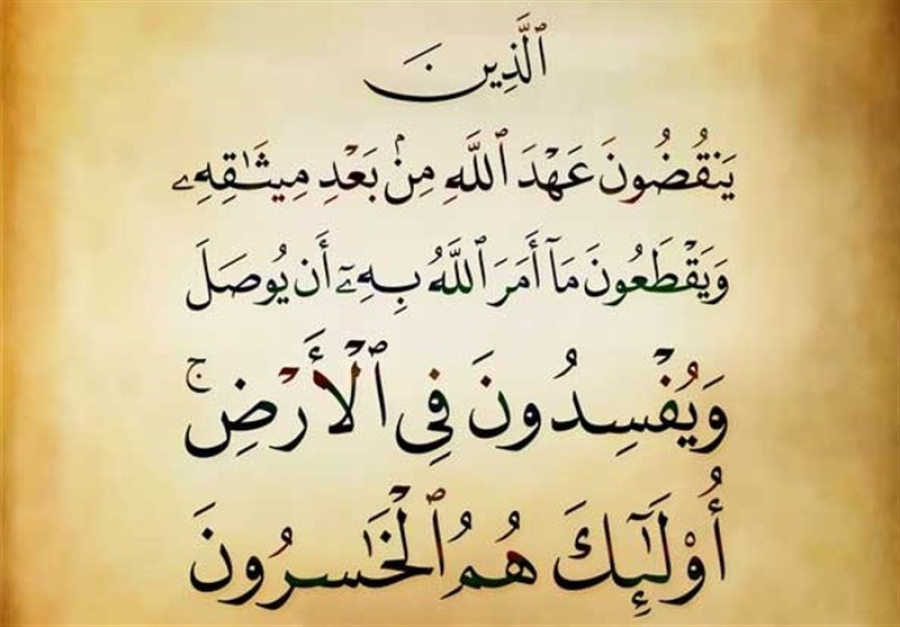 ٱلَّذِينَ
يَنقُضُونَ عَهْدَ ٱللَّهِ مِنۢ بَعْدِ مِيثَـٰقِهِۦ
وَيَقْطَعُونَ مَآ أَمَرَ ٱللَّهُ بِهِۦٓ أَن يُوصَلَ
وَيُفْسِدُونَ فِى ٱلْأَرْضِ ۚ
أُو۟لَـٰٓئِكَ هُمُ ٱلْخَـٰسِرُونَ